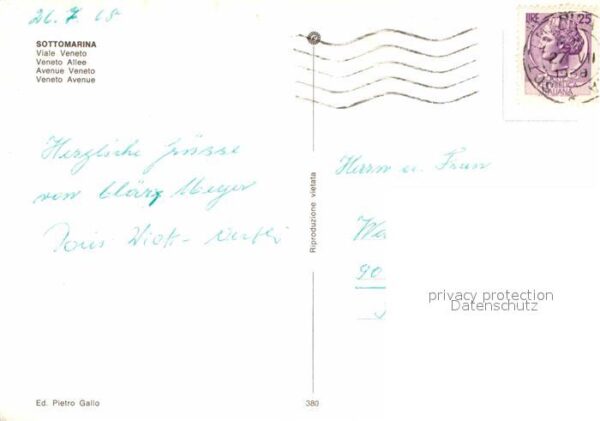 26.7.68
SOTTOMARINA
Viale Veneto
Veneto Allee
Avenue Veneto
Veneto Avenue
LIRE 25
Herzliche Grüsse
von Kläry Meyer
Doris
Herrn u. Frau
We
90
Riproduzione vietata
privacy protection
Datenschutz
Ed. Pietro Gallo
380